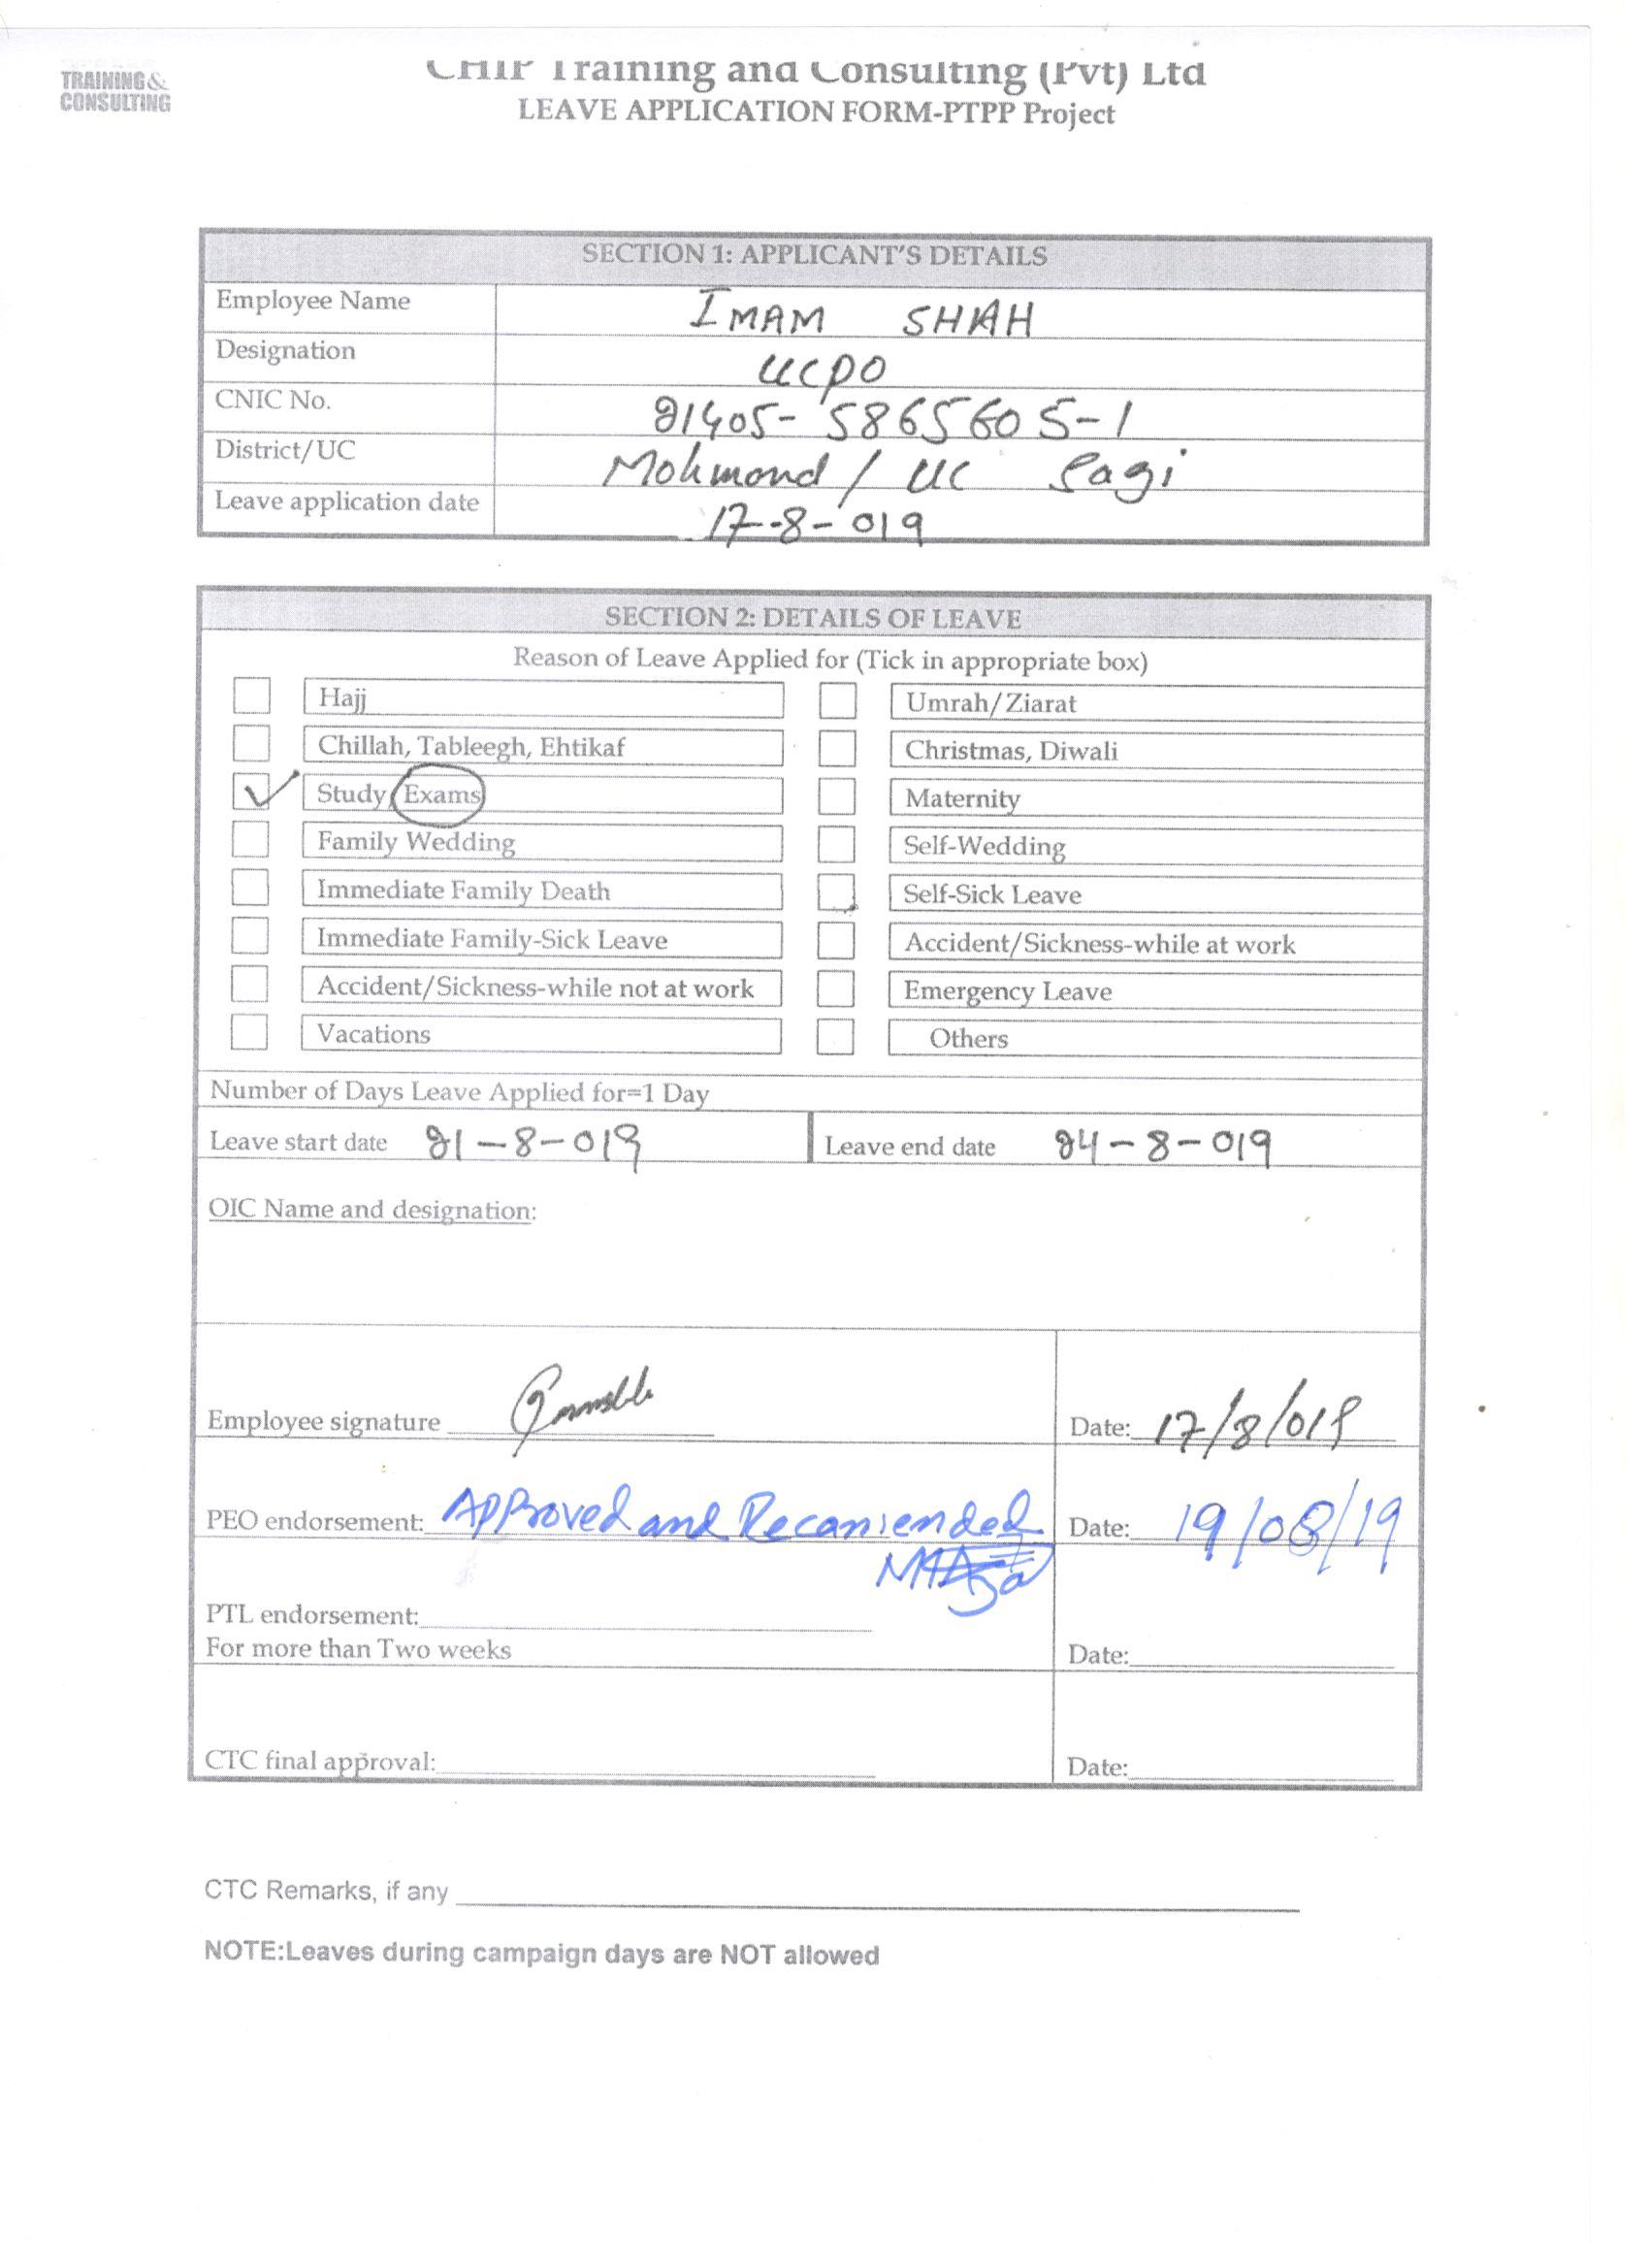 TRAINING&
CONSULTING
CHIP Training and Consulting (Pvt) Ltd
LEAVE APPLICATION FORM-PTPP Project
SECTION 1: APPLICANT'S DETAILS
Employee Name IMAM SHAH
Designation UCPO
CNIC No. 21405-5865605-1
District/UC Mohmand / UC Pagi
Leave application date 17-8-019
SECTION 2: DETAILS OF LEAVE
Reason of Leave Applied for (Tick in appropriate box)
Hajj Umrah/Ziarat
Chillah, Tableegh, Ehtikaf Christmas, Diwali
Study/Exams Maternity
Family Wedding Self-Wedding
Immediate Family Death Self-Sick Leave
Immediate Family-Sick Leave Accident/Sickness-while at work
Accident/Sickness-while not at work Emergency Leave
Vacations Others
Number of Days Leave Applied for=1 Day
Leave start date 21-8-019 Leave end date 24-8-019
OIC Name and designation:
Employee signature Date: 17/8/019
PEO endorsement: Approved and Recamended Date: 19/08/19
PTL endorsement:
For more than Two weeks Date:
CTC final approval: Date:
CTC Remarks, if any
NOTE:Leaves during campaign days are NOT allowed